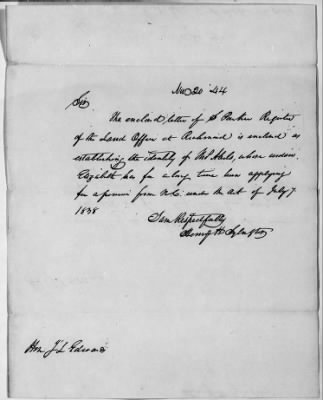 Nov 20 '44
Sir
The enclosd letter of S Parker Register
of the Land Office at Richmond is enclosed as
establishing the identity of Mr Hale, whose widow
Elizabeth has for a long time been applying
for a pension from N.C. under the act of July 7
1838
I am Respectfully
Henry H
Hon J L Edwards